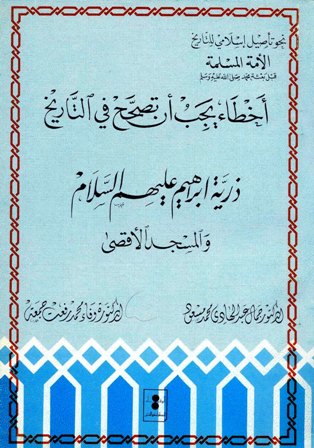 نحو تأصيل إسلامي للتاريخ
الأمة المسلمة
قبل بعثة محمد صلى الله عليه وسلم
أخطاء يجب أن تصحح في التاريخ
ذرية ابراهيم عليهم السلام
والمسجد الأقصى
الدكتور جمال عبد الهادي محمد مسعود
الدكتورة وفاء محمد رفعت جمعة